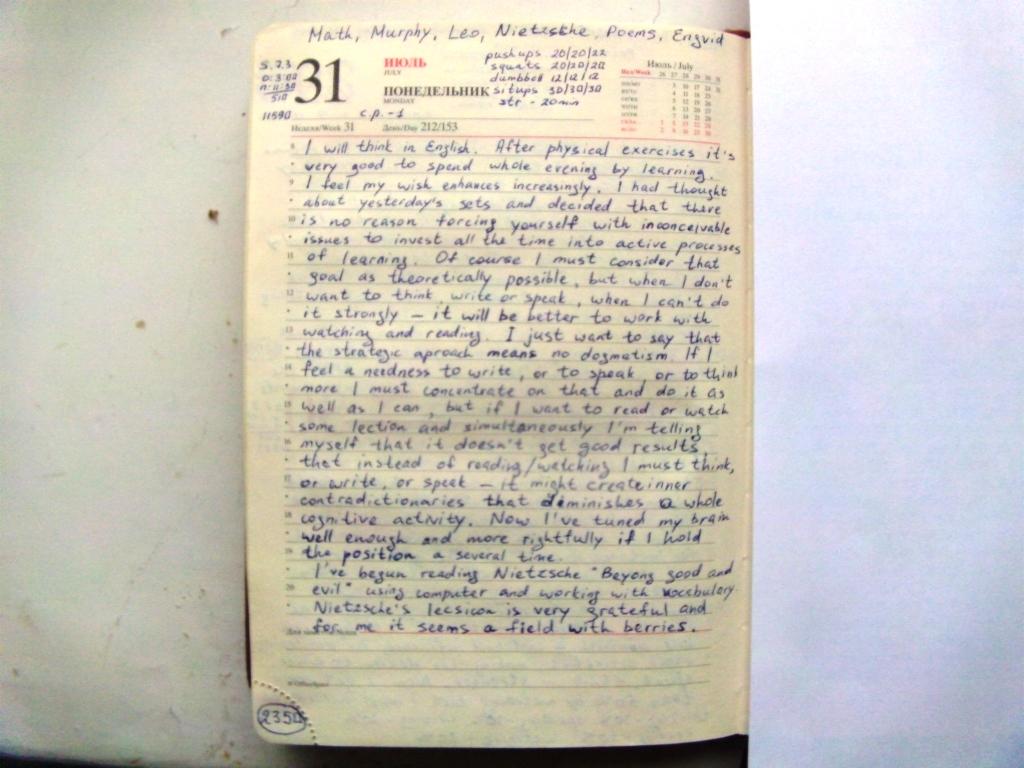 Math, Murphy, Leo, Nietzsche, Poems, Engvid
5.7.3
11590
31
ИЮЛЬ
JULY
ПОНЕДЕЛЬНИК
MONDAY
c.p. - 1
pushups 20/20/22
squats 20/20/20
dumbbell 12/12/12
situps 30/30/30
str - 20min
Июль / July
Неделя/Week 31 День/Day 212/153
I will think in English. After physical exercises it's
very good to spend whole evening by learning.
I feel my wish enhances increasingly. I had thought
about yesterday's sets and decided that there
is no reason forcing yourself with inconceivable
issues to invest all the time into active processes
of learning. Of course I must consider that
goal as theoretically possible, but when I don't
want to think, write or speak, when I can't do
it strongly – it will be better to work with
watching and reading. I just want to say that
the strategic aproach means no dogmatism. If I
feel a needness to write, or to speak, or to think
more I must concentrate on that and do it as
well as I can, but if I want to read or watch
some lection and simultaneously I'm telling
myself that it doesn't get good results,
that instead of reading/watching I must think,
or write, or speak – it might create inner
contradictionaries that diminishes a whole
cognitive activity. Now I've tuned my brain
well enough and more rightfully if I hold
the position a several time.
I've begun reading Nietzsche "Beyong good and
evil" using computer and working with vocabulary
Nietzsche's lecsicon is very grateful and
for me it seems a field with berries.
2350